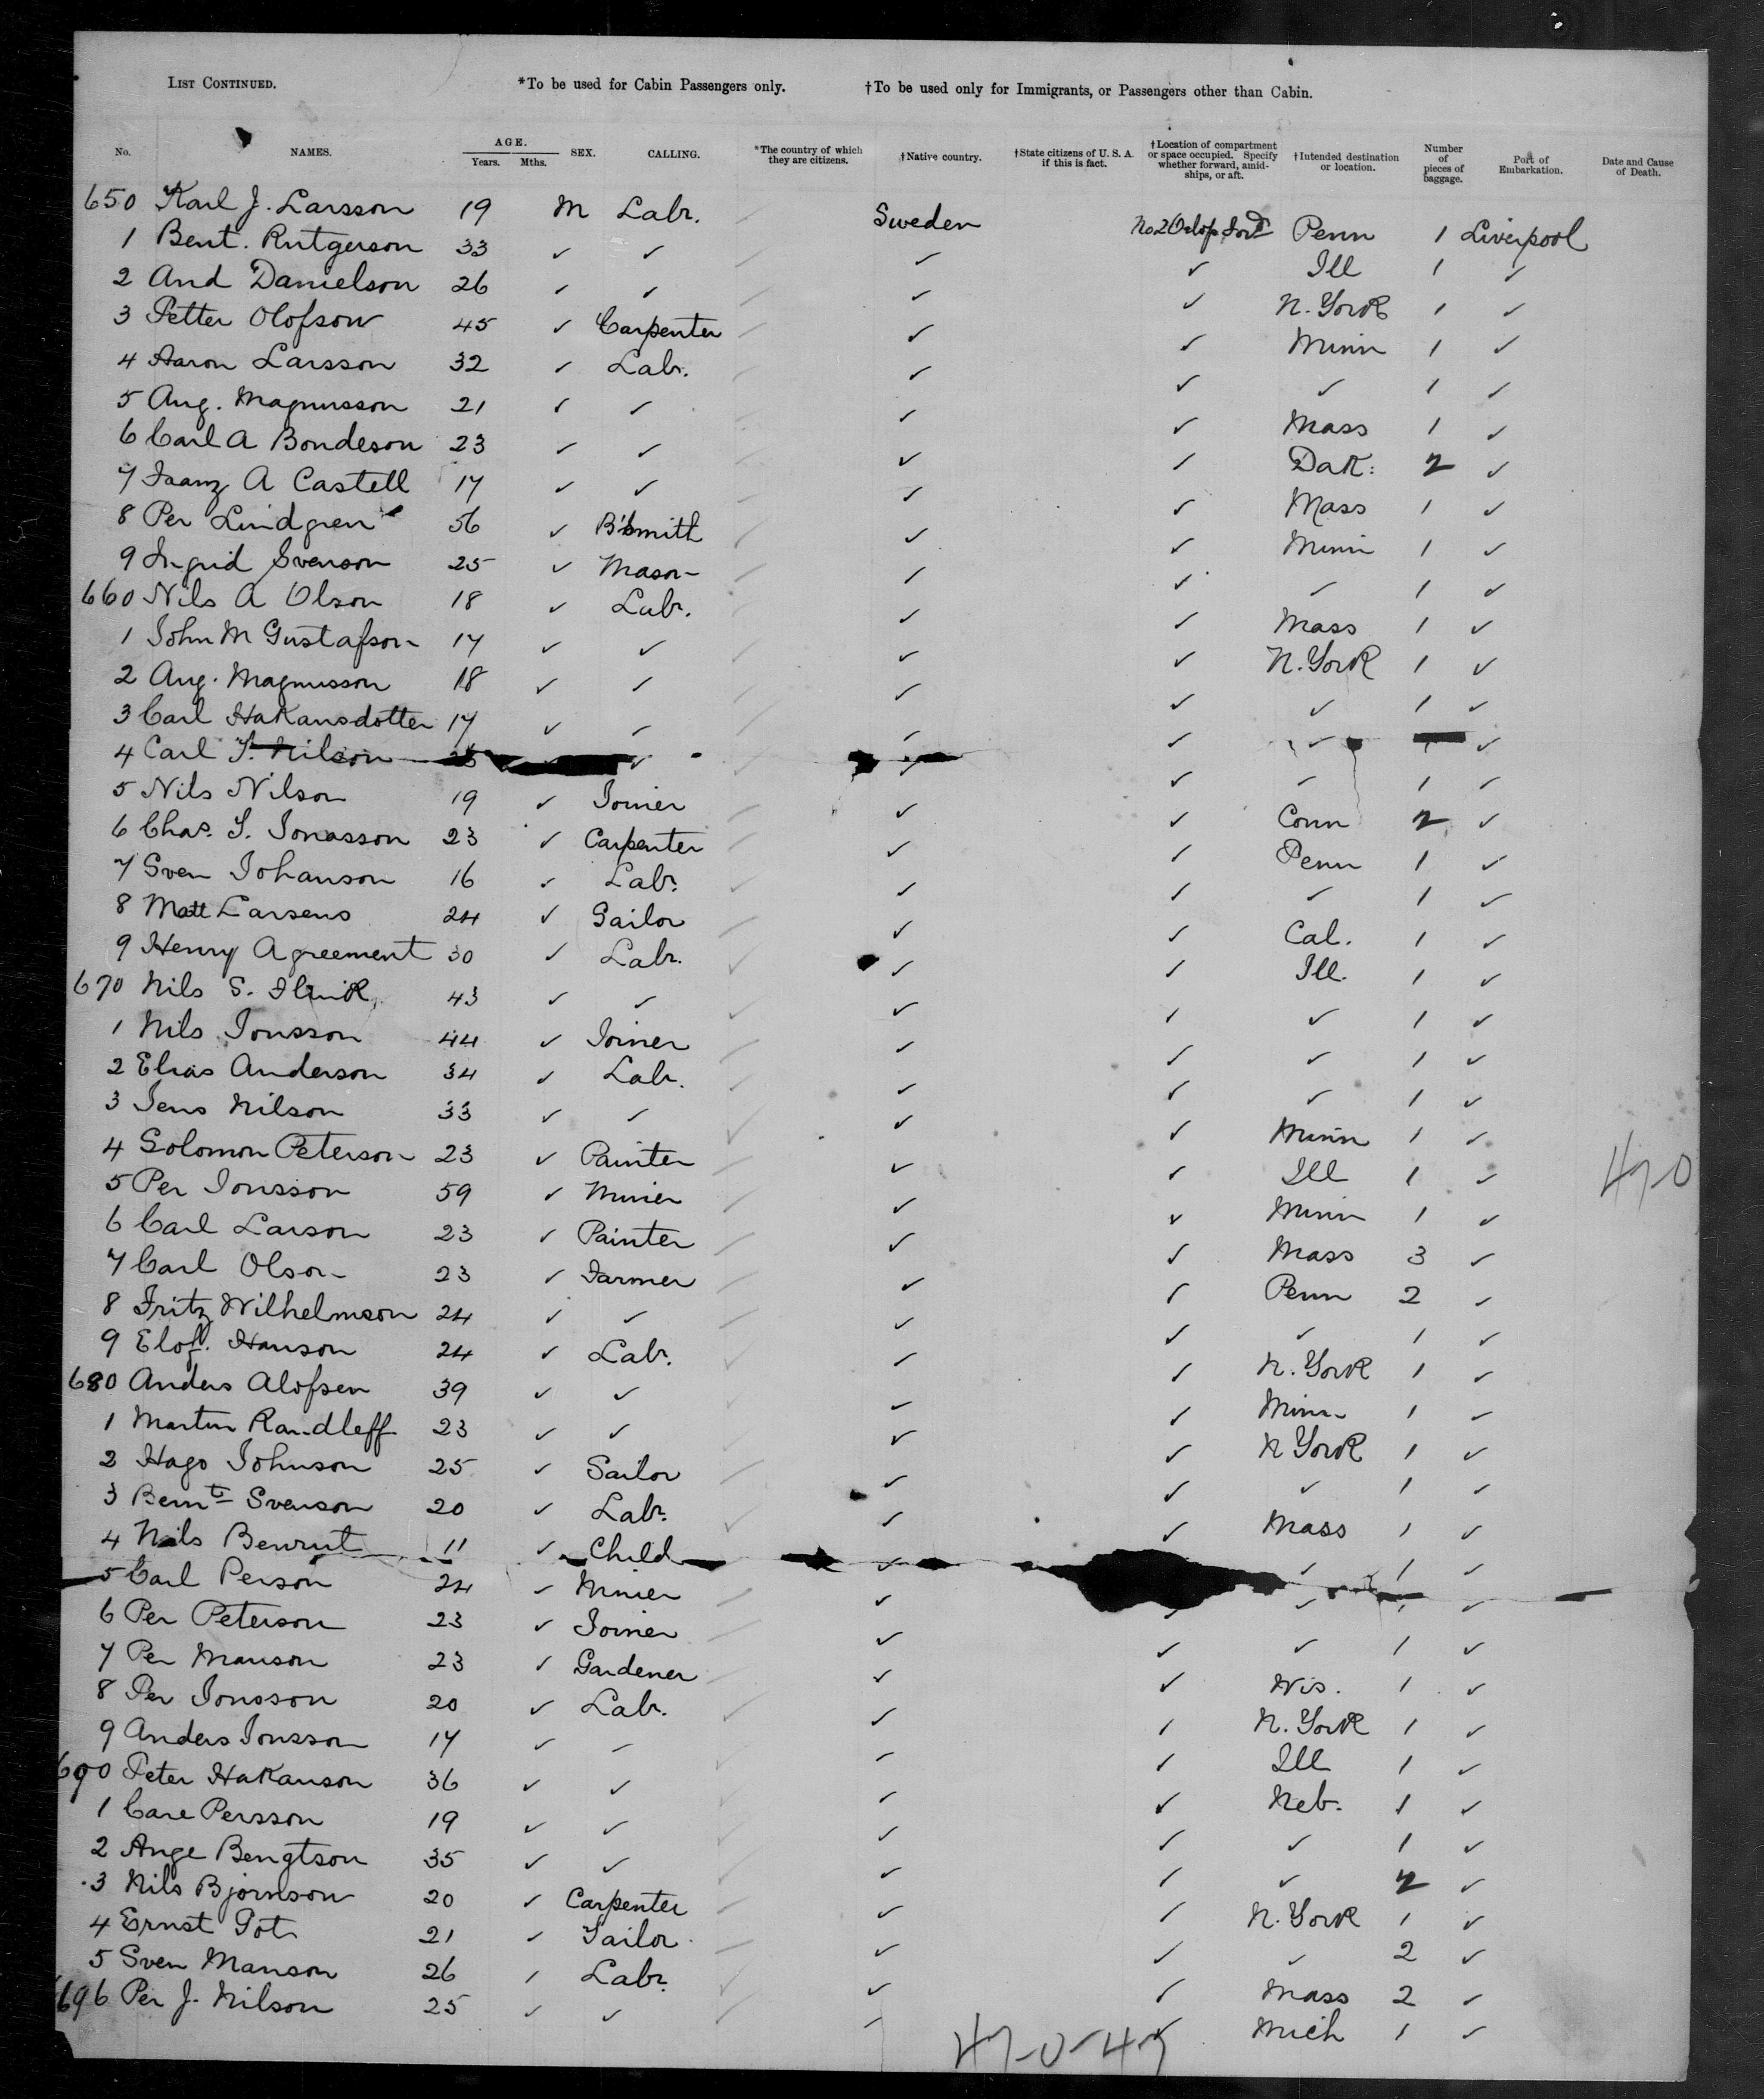 LIST CONTINUED. *To be used for Cabin Passengers only. †To be used only for Immigrants, or Passengers other than Cabin.
No. NAMES. AGE. Years. Mths. SEX. CALLING. *The country of which they are citizens. †Native country. †State citizens of U. S. A. if this is fact. †Location of compartment or space occupied. Specify whether forward, amidships, or aft. †Intended destination or location. Number of pieces of baggage. Port of Embarkation. Date and Cause of Death.
650 Karl J. Larsson 19 M Labr. Sweden No 2 Orlop Ford Penn 1 Liverpool
1 Bent. Rutgerson 33 ✓ ✓ ✓ ✓ Ill 1 ✓
2 And Danielson 26 ✓ ✓ ✓ ✓ N. York 1 ✓
3 Petter Olofson 45 ✓ Carpenter ✓ ✓ Minn 1 ✓
4 Aaron Larsson 32 ✓ Labr. ✓ ✓ ✓ 1 ✓
5 Aug. Magnusson 21 ✓ ✓ ✓ ✓ Mass 1 ✓
6 Carl A Bondeson 23 ✓ ✓ ✓ ✓ Dak: 2 ✓
7 Franz A Castell 17 ✓ ✓ ✓ ✓ Mass 1 ✓
8 Per Lindgren 56 ✓ B'smith ✓ ✓ Minn 1 ✓
9 Ingrid Svenson 25 ✓ Mason ✓ ✓ ✓ 1 ✓
660 Nils A Olson 18 ✓ Labr. ✓ ✓ Mass 1 ✓
1 John M Gustafson 17 ✓ ✓ ✓ ✓ N. York 1 ✓
2 Aug. Magnusson 18 ✓ ✓ ✓ ✓ ✓ 1 ✓
3 Carl Hakansdotter 17 ✓ ✓ ✓ ✓ ✓ 1 ✓
4 Carl Nilson ✓ ✓ ✓ ✓ 1 ✓
5 Nils Nilson 19 ✓ Joiner ✓ ✓ Conn 2 ✓
6 Chas. J. Jonasson 23 ✓ Carpenter ✓ ✓ Penn 1 ✓
7 Sven Johanson 16 ✓ Labr. ✓ ✓ ✓ 1 ✓
8 Matt Larsens 24 ✓ Sailor ✓ ✓ Cal. 1 ✓
9 Henry Agreement 30 ✓ Labr. ✓ ✓ Ill. 1 ✓
670 Nils S. 43 ✓ ✓ ✓ ✓ ✓ 1 ✓
1 Nils Jonsson 44 ✓ Joiner ✓ ✓ ✓ 1 ✓
2 Elias Anderson 34 ✓ Labr. ✓ ✓ ✓ 1 ✓
3 Jens Nilson 33 ✓ ✓ ✓ ✓ Minn 1 ✓
4 Solomon Peterson 23 ✓ Painter ✓ ✓ Ill 1 ✓
5 Per Jonsson 59 ✓ Miner ✓ ✓ Minn 1 ✓
6 Carl Larson 23 ✓ Painter ✓ ✓ Mass 3 ✓
7 Carl Olson 23 ✓ Farmer ✓ ✓ Penn 2 ✓
8 Fritz Wilhelmson 24 ✓ ✓ ✓ ✓ ✓ 1 ✓
9 Elof. Hanson 24 ✓ Labr. ✓ ✓ N. York 1 ✓
680 Anders Alofsen 39 ✓ ✓ ✓ ✓ Minn 1 ✓
1 Martin Randleff 23 ✓ ✓ ✓ ✓ N York 1 ✓
2 Hago Johnson 25 ✓ Sailor ✓ ✓ ✓ 1 ✓
3 Bernt Svenson 20 ✓ Labr. ✓ ✓ Mass 1 ✓
4 Nils 11 ✓ Child ✓ ✓ 1 ✓
5 Carl Person 24 ✓ Miner ✓ ✓ ✓ 1 ✓
6 Per Peterson 23 ✓ Joiner ✓ ✓ ✓ 1 ✓
7 Per Manson 23 ✓ Gardener ✓ ✓ Wis. 1 ✓
8 Per Jonsson 20 ✓ Labr. ✓ ✓ N. York 1 ✓
9 Anders Jonsson 17 ✓ ✓ ✓ ✓ Ill 1 ✓
690 Peter Hakanson 36 ✓ ✓ ✓ ✓ Neb. 1 ✓
1 Care Persson 19 ✓ ✓ ✓ ✓ ✓ 1 ✓
2 Ange Bengtson 35 ✓ ✓ ✓ ✓ ✓ 2 ✓
3 Nils Bjornson 20 ✓ Carpenter ✓ ✓ N. York 1 ✓
4 Ernst Got 21 ✓ Tailor ✓ ✓ ✓ 2 ✓
5 Sven Manson 26 ✓ Labr. ✓ ✓ Mass 2 ✓
696 Per J. Nilson 25 ✓ ✓ ✓ ✓ Mich 1 ✓
47-0
47-0-47